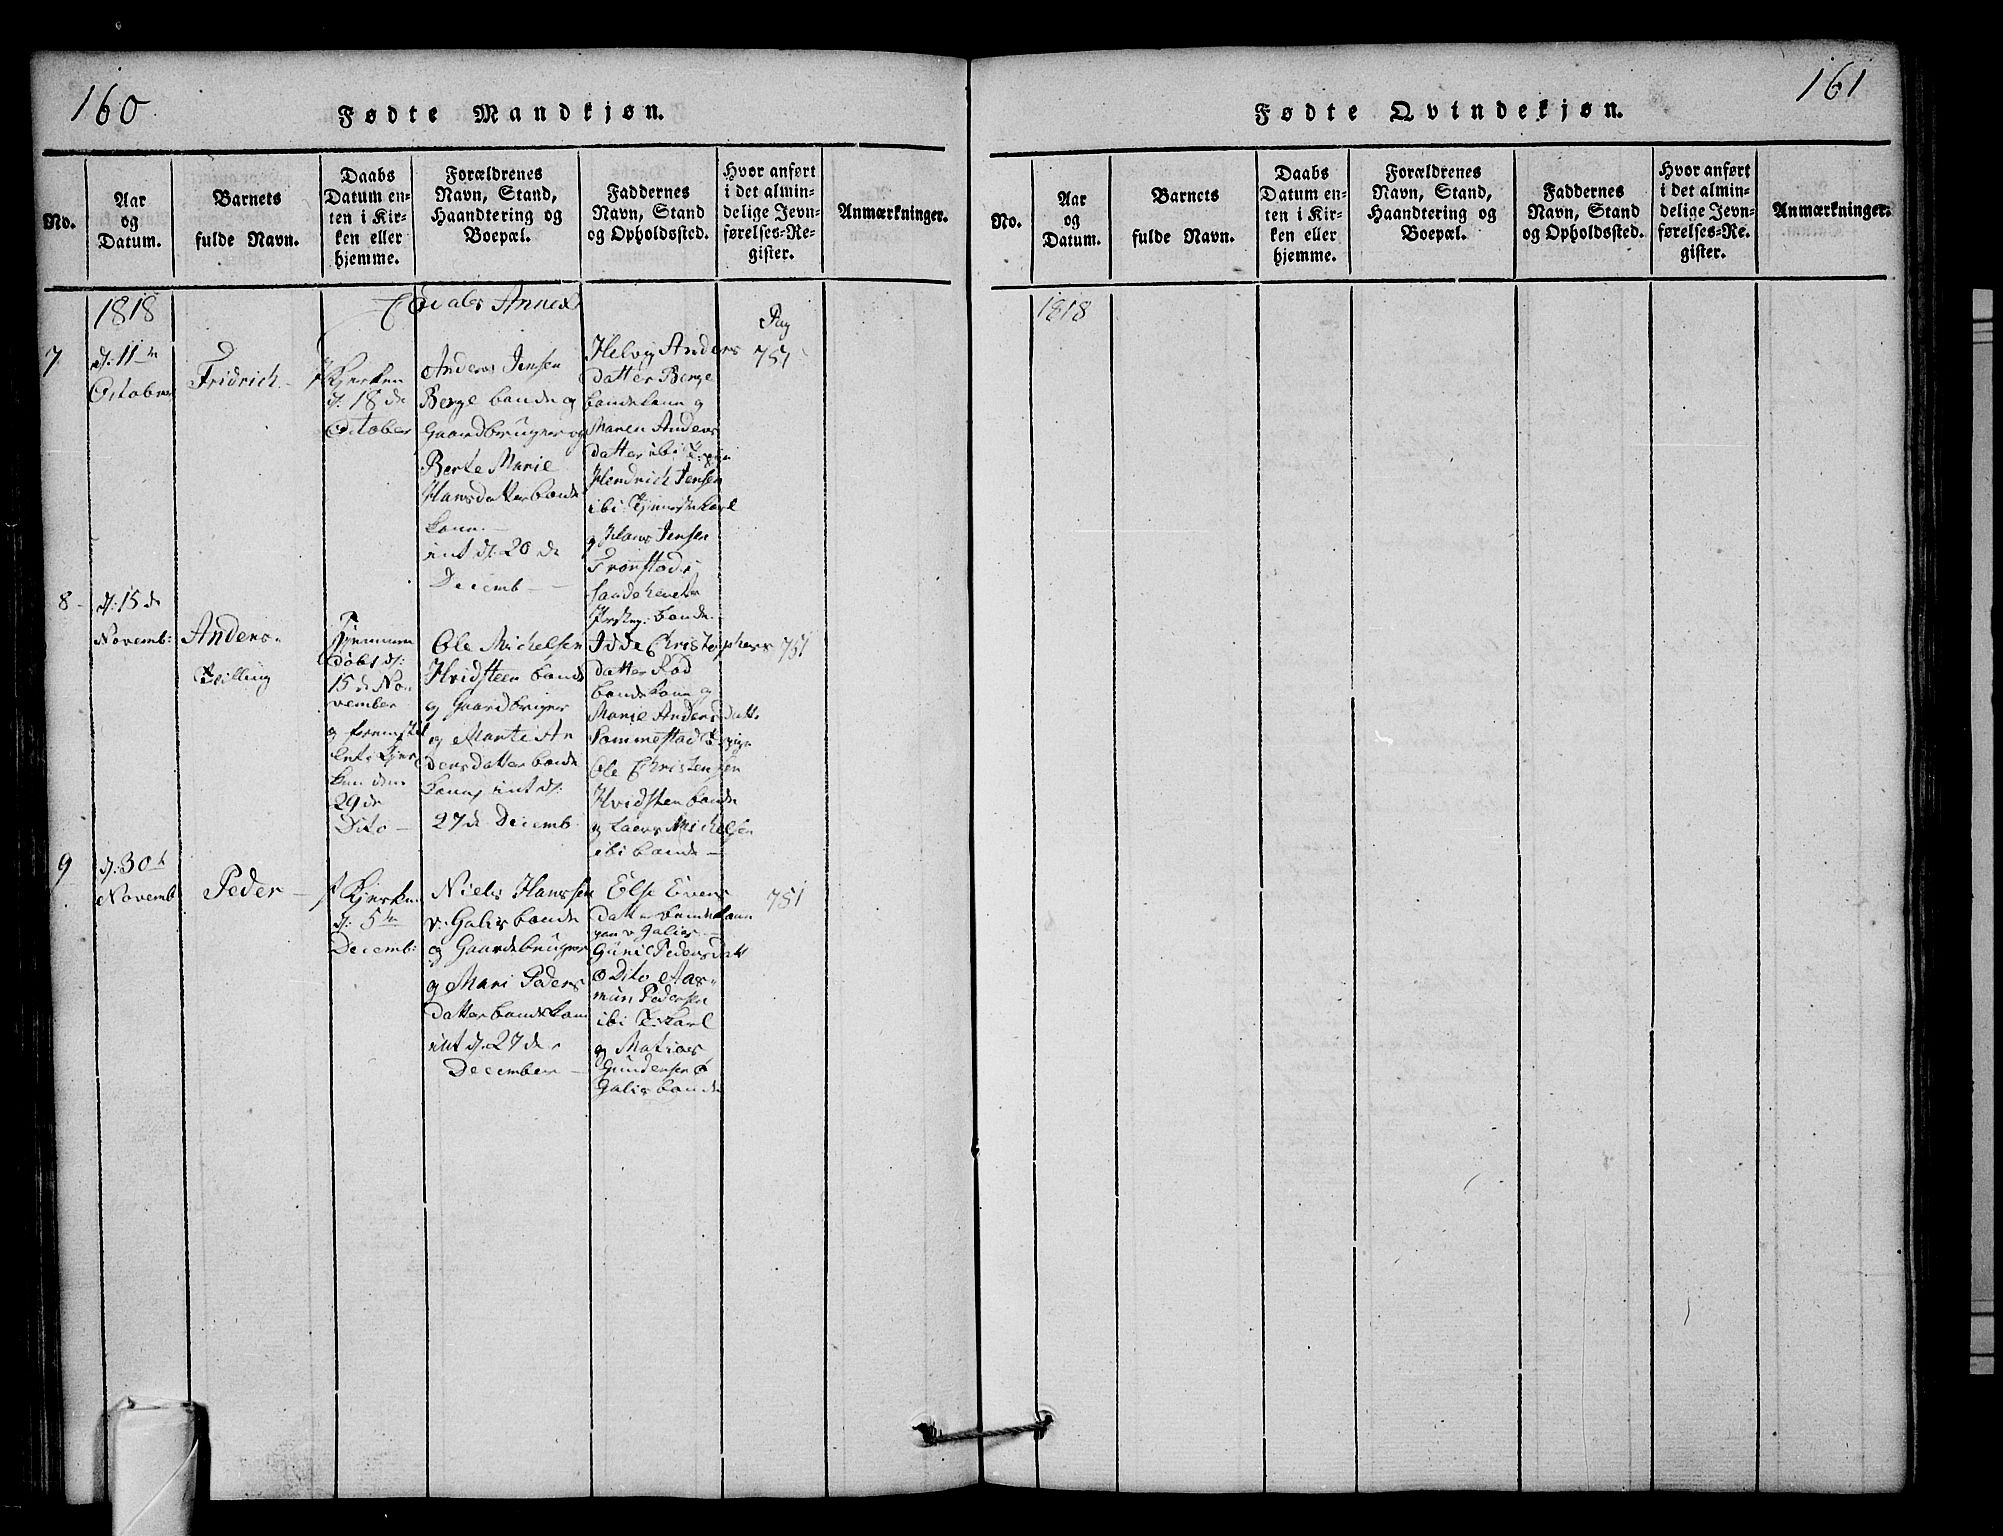 160
Fødte Mandkjøn.
No.
Aar
og
Datum.
Barnets
fulde Navn.
Daabs
Datum en-
ten i Kir-
ken eller
hjemme.
Forældrenes
Navn, Stand,
Haandtering og
Boepæl.
Faddernes
Navn, Stand
og Opholdssted.
Hvor anført
i det almin-
delige Jevn-
førelses-Re-
gister.
Anmærkninger.
1818
Annex
Pag
7
d: 11te
October
Fridrich
Kjerken
d. 18de
October
Anders Jensen
Berge bonde og
Gaardbruger og
Berte Marie
Hansdatter bonde
kone.
int d. 20de
Decemb
Helvig Anders
datter Berge
bondekone og
Maren Anders
datter ibi
Hendrich Jensen
ibi
og Hans Jensen
Trønstad
bonde
751
8
d: 15de
Novemb:
Anders
Tvilling
Hjemme
døbt d:
15de No
vember
og fremstil
let i Kjer
ken den
29de
Dito
Ole Michelsen
Hvidsteen bonde
og Gaardbruger
og Marte An
dersdatter bonde
kone, int d:
27de Decemb
Idde Christophers
datter Rød
bondekone og
Marie Andersdatt:
Sommestad
Ole Christensen
Hvidsten bonde
og Laers Michelsen
ibi bonde
751
9
d: 30te
Novemb
Peder
Kjerken
d. 5te
Decemb:
Niels Hanssen
v: Galis bonde
og Gaardebruger
og Mari Peders
datter bondekone
int d. 27de
December
Else Evens
datter bondekone
v Galis
Guril Pedersdatt
Dito Aas-
mun Pedersen
ibi
og Matias
Gundersen
Galis bonde
751
161
Fødte Qvindekjøn.
No.
Aar
og
Datum.
Barnets
fulde Navn.
Daabs
Datum en-
ten i Kir-
ken eller
hjemme.
Forældrenes
Navn, Stand,
Haandtering og
Boepæl.
Faddernes
Navn, Stand
og Opholdssted.
Hvor anført
i det almin-
delige Jevn-
førelses-Re-
gister.
Anmærkninger.
1818